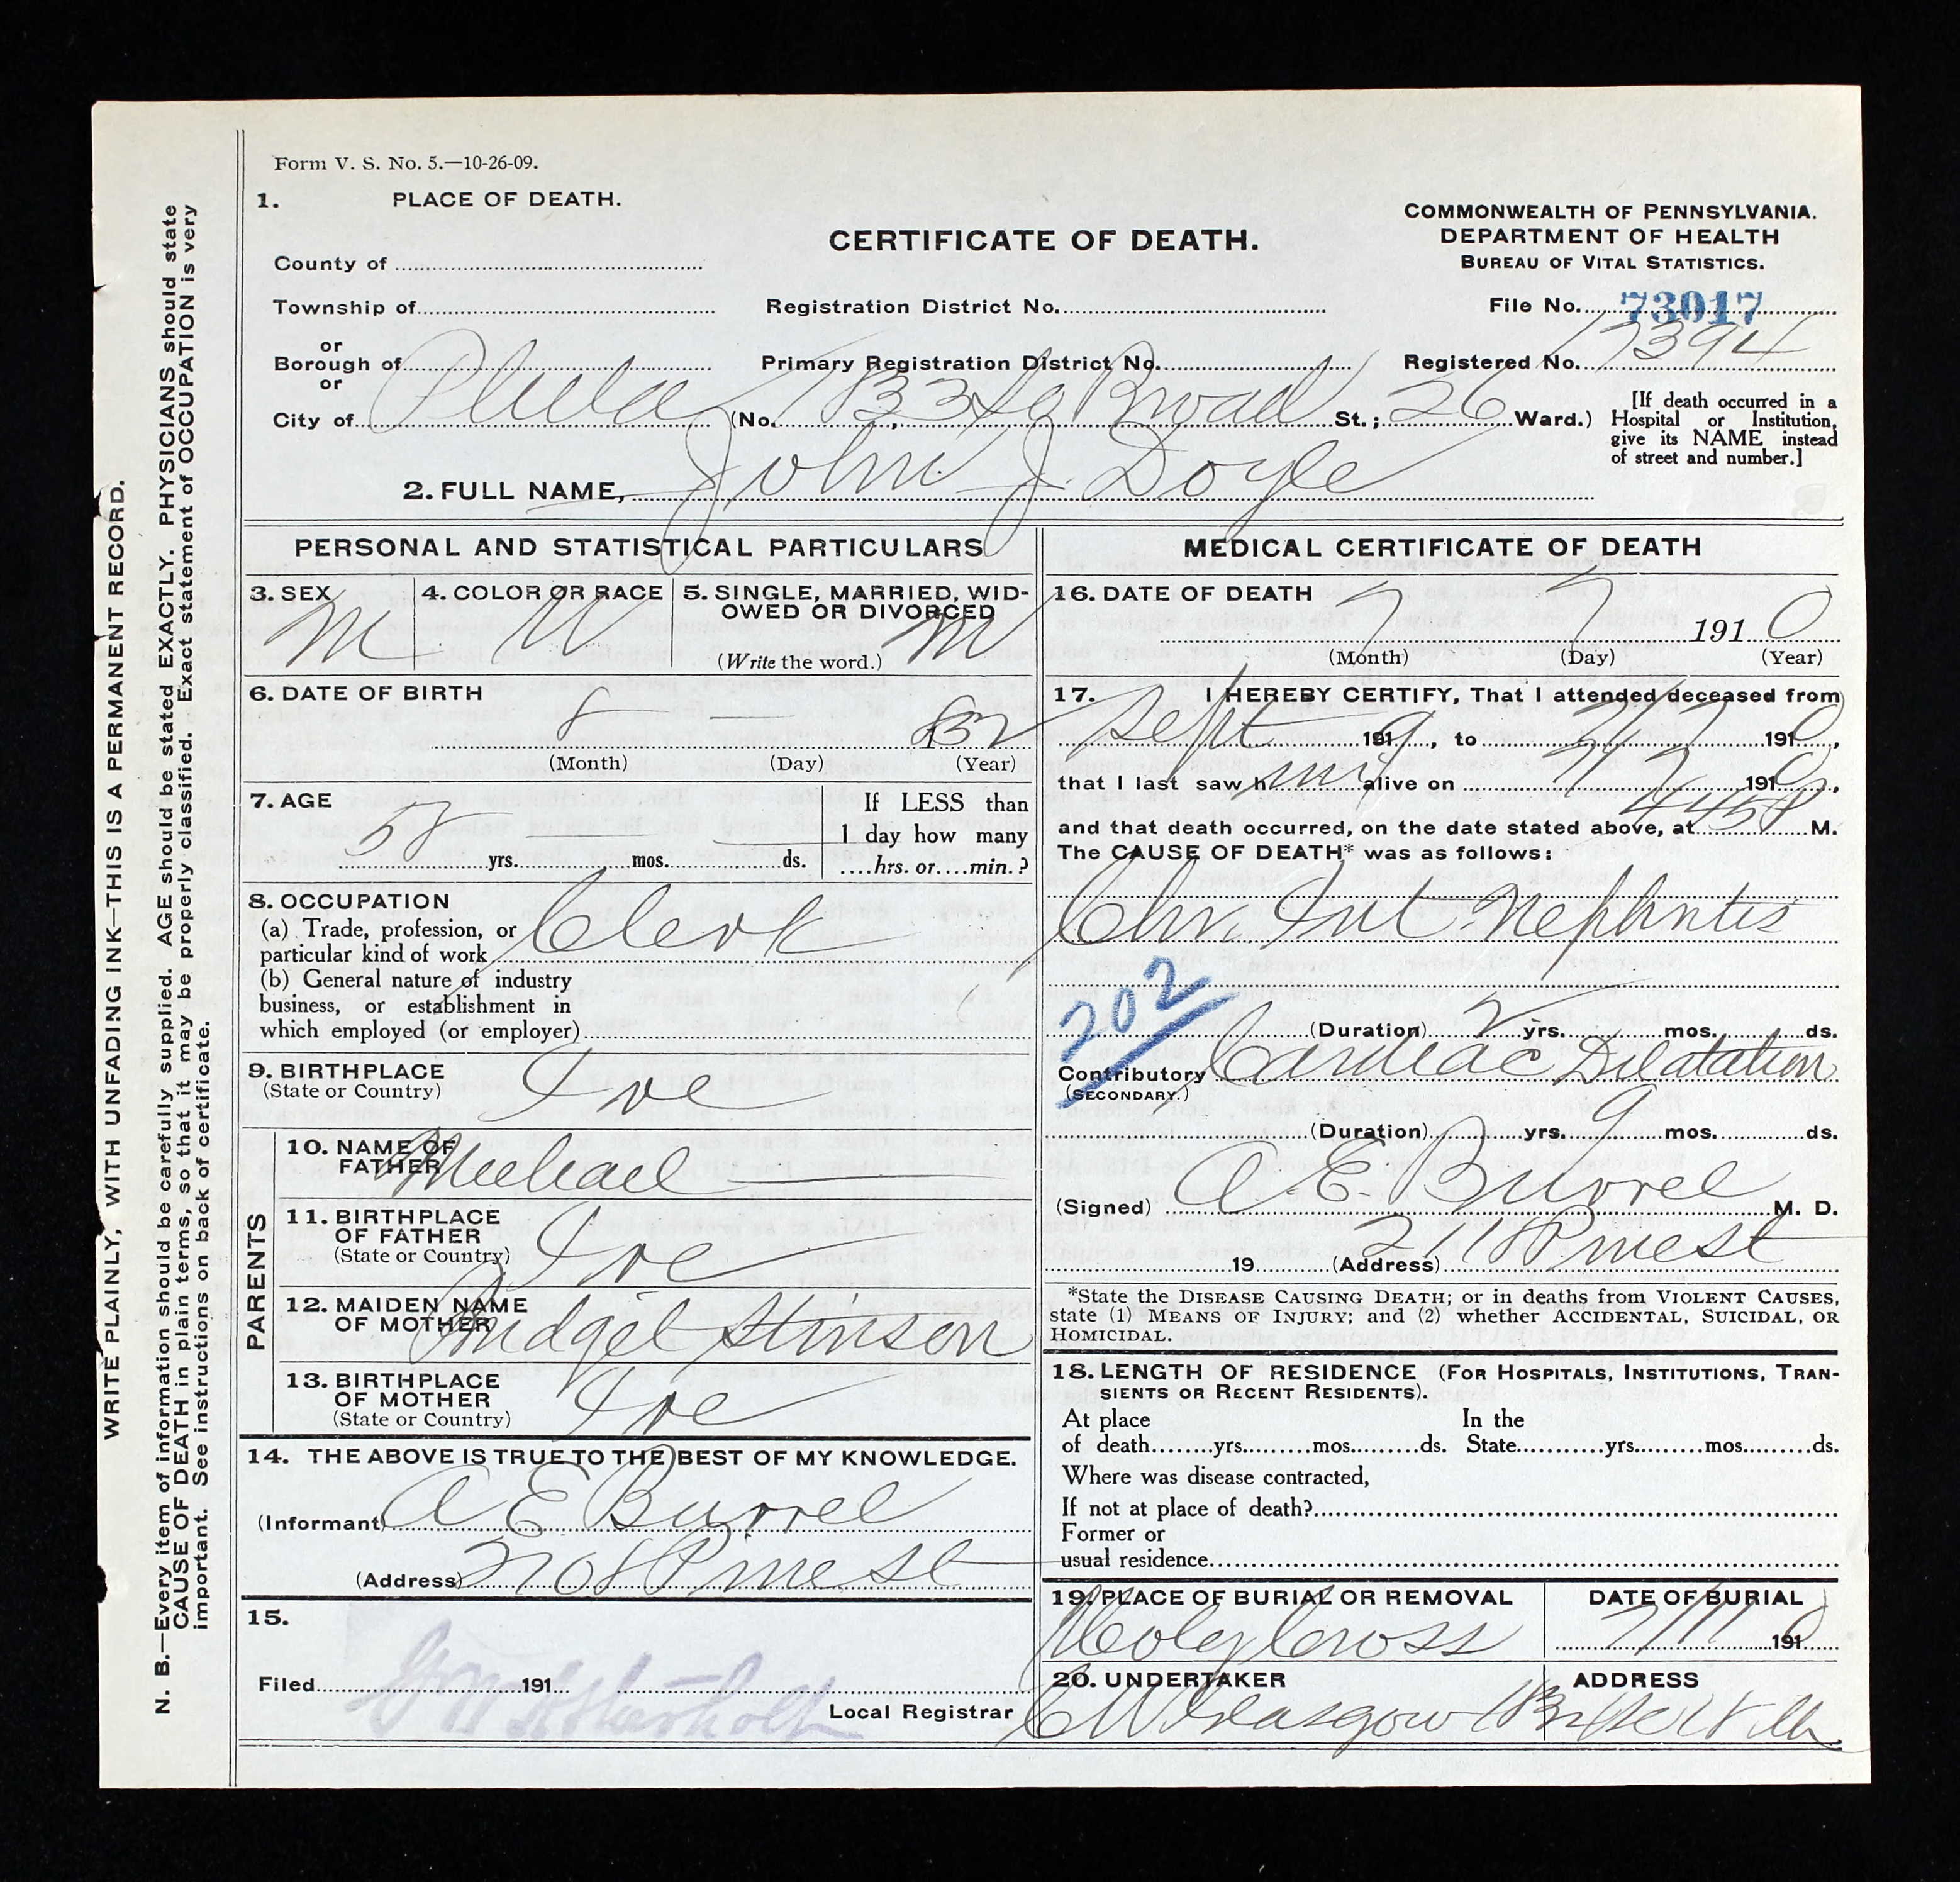 Form V. S. No. 5.—10-26-09.
1. PLACE OF DEATH.
COMMONWEALTH OF PENNSYLVANIA.
DEPARTMENT OF HEALTH
BUREAU OF VITAL STATISTICS.
CERTIFICATE OF DEATH.
County of
Township of
Registration District No.
File No. 73017
or
Borough of
Primary Registration District No.
Registered No. 17394
or
City of Phila (No. 1833 So Broad St.; 26 Ward.)
[If death occurred in a
Hospital or Institution,
give its NAME instead
of street and number.]
2. FULL NAME, John J. Doyle
PERSONAL AND STATISTICAL PARTICULARS
3. SEX M
4. COLOR OR RACE W
5. SINGLE, MARRIED, WID-
OWED OR DIVORCED
(Write the word.) M
6. DATE OF BIRTH
8 —
(Month) (Day) (Year)
7. AGE
58 yrs. mos. ds.
If LESS than
1 day how many
....hrs. or....min.?
8. OCCUPATION
(a) Trade, profession, or
particular kind of work Clerk
(b) General nature of industry
business, or establishment in
which employed (or employer)
9. BIRTHPLACE
(State or Country) Ire
PARENTS
10. NAME OF
FATHER Michael
11. BIRTHPLACE
OF FATHER
(State or Country) Ire
12. MAIDEN NAME
OF MOTHER Bridget Stinson
13. BIRTHPLACE
OF MOTHER
(State or Country) Ire
14. THE ABOVE IS TRUE TO THE BEST OF MY KNOWLEDGE.
(Informant) A E Burrel
(Address) 2708 Pine St
15.
Filed 191
Local Registrar
MEDICAL CERTIFICATE OF DEATH
16. DATE OF DEATH
7 7 1910
(Month) (Day) (Year)
17. I HEREBY CERTIFY, That I attended deceased from
Sept 1919, to 7/7 1910,
that I last saw him alive on 7/7 1910,
and that death occurred, on the date stated above, at M.
The CAUSE OF DEATH* was as follows:
Chr. Int Nephritis
202
(Duration) 2 yrs. mos. ds.
Contributory Cardiac Dilatation
(SECONDARY.)
(Duration) yrs. 9 mos. ds.
(Signed) A E Burrel M. D.
19 (Address) Pine St
*State the DISEASE CAUSING DEATH; or in deaths from VIOLENT CAUSES,
state (1) MEANS OF INJURY; and (2) whether ACCIDENTAL, SUICIDAL, OR
HOMICIDAL.
18. LENGTH OF RESIDENCE (FOR HOSPITALS, INSTITUTIONS, TRAN-
SIENTS OR RECENT RESIDENTS).
At place In the
of death yrs. mos. ds. State yrs. mos. ds.
Where was disease contracted,
If not at place of death?
Former or
usual residence
19. PLACE OF BURIAL OR REMOVAL
Holy Cross
DATE OF BURIAL
7/11 1910
20. UNDERTAKER
ADDRESS
WRITE PLAINLY, WITH UNFADING INK—THIS IS A PERMANENT RECORD.
N. B.—Every item of information should be carefully supplied. AGE should be stated EXACTLY. PHYSICIANS should state
CAUSE OF DEATH in plain terms, so that it may be properly classified. Exact statement of OCCUPATION is very
important. See instructions on back of certificate.